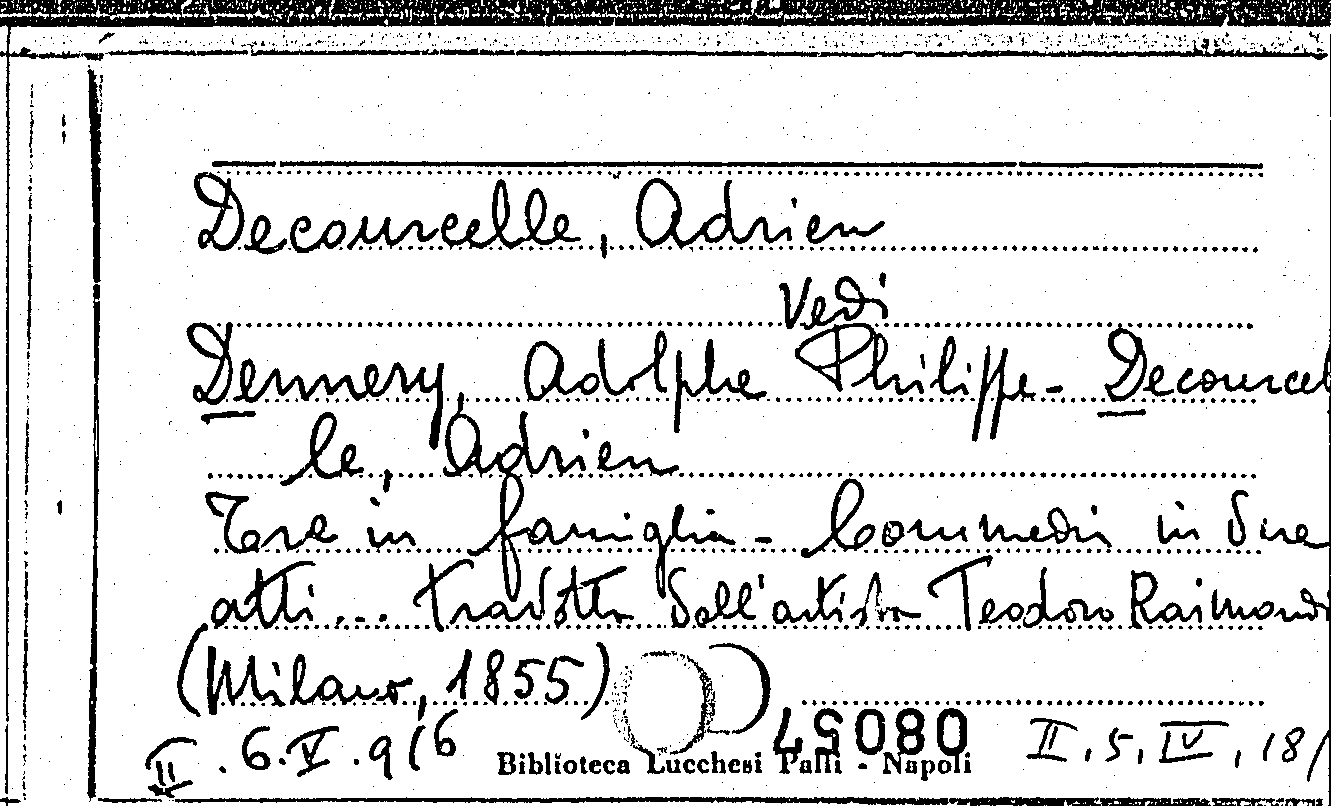 Decourcelle, Adrien
Vedi
Dennery, Adolphe Philippe - Decourcel
le, Adrien
Tre in famiglia - Commedia in due
atti... tradotta dall'artista Teodoro Raimondi
(Milano, 1855)
080557
II. 6. V. 9(6
Biblioteca Lucchesi Palli - Napoli
II, 5, IV, 18/